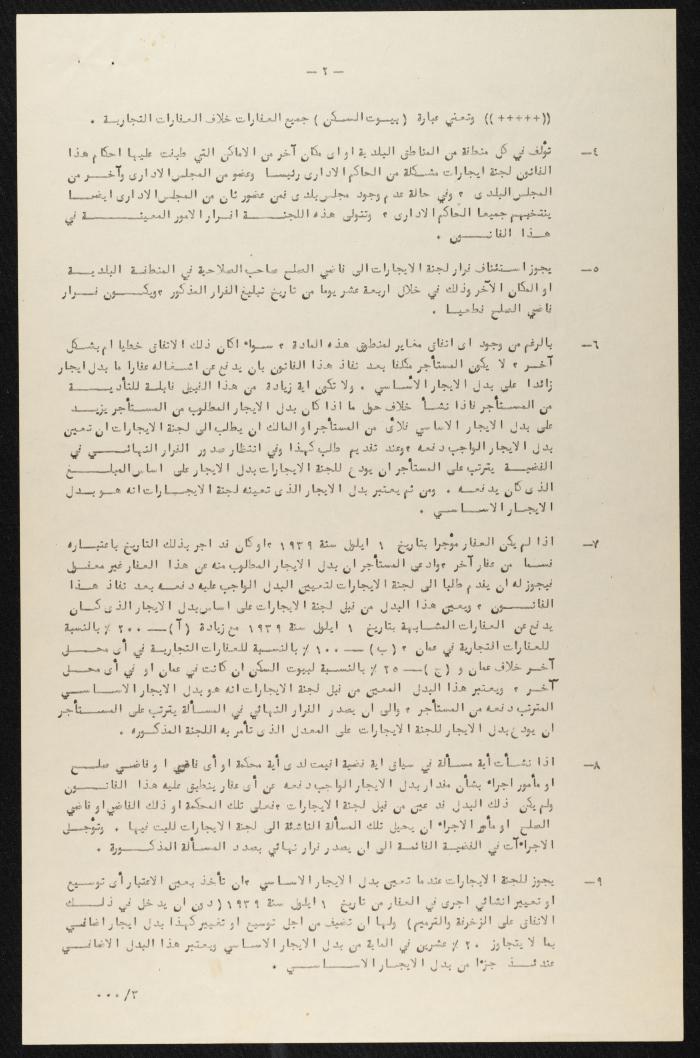 — ٢ —
((+++++)) وتعني عبارة (بيوت السكن) جميع العقارات خلاف العقارات التجارية .
٤— تؤلف في كل منطقة من المناطق البلدية او اى مكان آخر من الاماكن التي طبقت عليها احكام هذا
القانون لجنة ايجارات مشكلة من الحاكم الادارى رئيسا وعضو من المجلس الادارى وآخر من
المجلس البلدى ؟ وفي حالة عدم وجود مجلس بلدى فمن عضو ثان من المجلس الادارى ايضا
ينتخبهم جميعا الحاكم الادارى ؟ وتتولى هذه اللجنة اقرار الامور المعينة في
هذا القانون .
٥— يجوز استئناف قرار لجنة الايجارات الى قاضي الصلح صاحب الصلاحية في المنطقة البلدية
او المكان الآخر وذلك في خلال اربعة عشر يوما من تاريخ تبليغ القرار المذكور ؟ ويكون قرار
قاضي الصلح قطعيا .
٦— بالرغم من وجود اى اتفاق مغاير لمنطوق هذه المادة ؟ سواء اكان ذلك الاتفاق خطيا ام بشكل
آخر ؟ لا يكون المستأجر مكلفا بعد نفاذ هذا القانون بان يدفع عن اشغاله عقارا ما بدل ايجار
زائدا على بدل الايجار الأساسي . ولا تكون اية زيادة من هذا القبيل قابلة للتأدية
من المستأجر فاذا نشأ خلاف حول ما اذا كان بدل الايجار المطلوب من المستأجر يزيد
على بدل الايجار الاساسي فلأى من المستأجر او المالك ان يطلب الى لجنة الايجارات ان تعين
بدل الايجار الواجب دفعه ؟ وعند تقديم طلب كهذا وفي انتظار صدور القرار النهائي في
القضية يترتب على المستأجر ان يودع للجنة الايجارات بدل الايجار على اساس المبلغ
الذى كان يدفعه . ومن ثم يعتبر بدل الايجار الذى تعينه لجنة الايجارات انه هو بدل
الايجار الاساسي .
٧— اذا لم يكن العقار مؤجرا بتاريخ ١ ايلول سنة ١٩٣٩ ؟ او كان قد اجر بذلك التاريخ باعتباره
قسما من عقار آخر ؟ وادعى المستأجر ان بدل الايجار المطلوب منه عن هذا العقار غير معقول
فيجوز له ان يقدم طلبا الى لجنة الايجارات لتعيين البدل الواجب عليه دفعه بعد نفاذ هذا
القانون ؟ ويعين هذا البدل من قبل لجنة الايجارات على اساس بدل الايجار الذى كان
يدفع عن العقارات المشابهة بتاريخ ١ ايلول سنة ١٩٣٩ مع زيادة (آ)— ٢٠٠ ٪ بالنسبة
للعقارات التجارية في عمان ؟ (ب) — ١٠٠ ٪ بالنسبة للعقارات التجارية في أى محل
آخر خلاف عمان و (ج)— ٢٥ ٪ بالنسبة لبيوت السكن ان كانت في عمان او في أى محل
آخر ؟ ويعتبر هذا البدل المعين من قبل لجنة الايجارات انه هو بدل الايجار الاساسي
المترتب دفعه من المستأجر ؟ والى ان يصدر القرار النهائي في المسألة يترتب على المستأجر
ان يودع بدل الايجار للجنة الايجارات على المعدل الذى تأمر به اللجنة المذكوره .
٨— اذا نشأت أية مسألة في سياق اية قضية اقيمت لدى أية محكمة او أى قاضي او قاضي صلح
او مأمور اجراء بشأن مقدار بدل الايجار الواجب دفعه عن أى عقار ينطبق عليه هذا القانون
ولم يكن ذلك البدل قد عين من قبل لجنة الايجارات ؟ فعلى تلك المحكمة او ذلك القاضي او قاضي
الصلح او مأمور الاجراء ان يحيل تلك المسألة الناشئة الى لجنة الايجارات للبت فيها . وتؤجل
الاجراءآت في القضية القائمة الى ان يصدر قرار نهائي بصدد المسألة المذكورة .
٩— يجوز للجنة الايجارات عندما تعين بدل الايجار الاساسي ؟ ان تأخذ بعين الاعتبار أى توسيع
او تعيير انشائي اجرى في العقار من تاريخ ١ ايلول سنة ١٩٣٩ (دون ان يدخل في ذلك
الانفاق على الزخرفة والترميم) ولها ان تضيف من اجل توسيع او تغيير كهذا بدل ايجار اضافي
بما لا يتجاوز ٢٠ ٪ عشرين في الماية من بدل الايجار الاساسي ويعتبر هذا البدل الاضافي
عندئذ جزءا من بدل الايجار الاساسي .
٣/٠٠٠